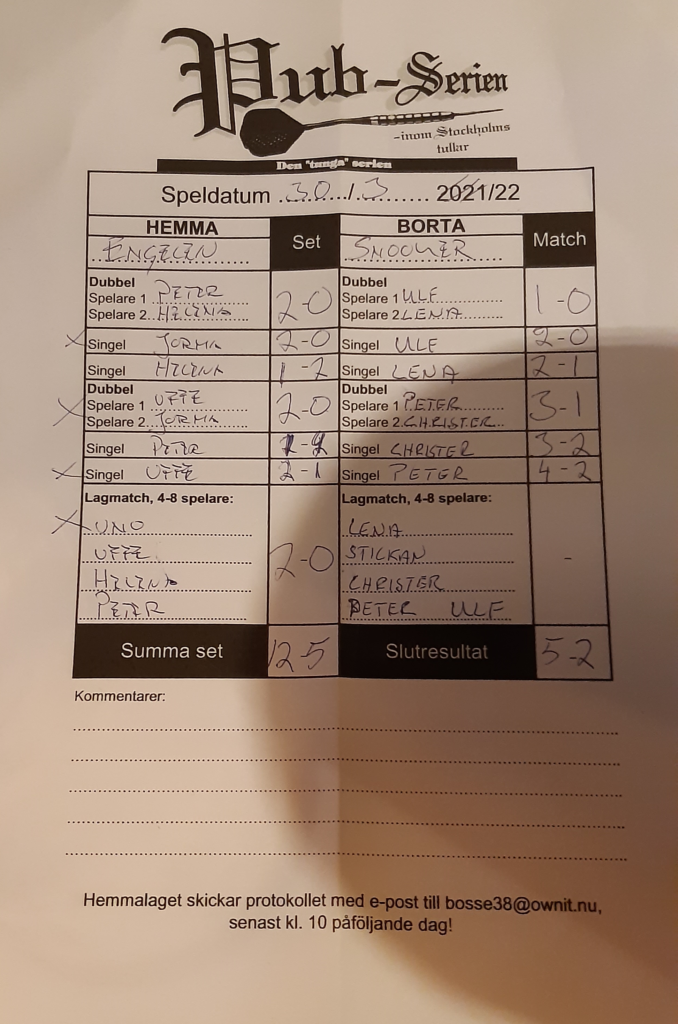 Pub-Serien
-inom Stockholms
tullar
Den "tunga" serien
Speldatum 30/3 2021/22
HEMMA Set BORTA Match
ENGELEN SNOOKER
Dubbel Dubbel
Spelare 1 PETER 2-0 Spelare 1 ULF 1-0
Spelare 2 HELENA Spelare 2 LENA
X Singel JORMA 2-0 Singel ULF 2-0
Singel HELENA 1-2 Singel LENA 2-1
Dubbel Dubbel
X Spelare 1 UFFE 2-0 Spelare 1 PETER 3-1
Spelare 2 JORMA Spelare 2 CHRISTER
Singel PETER 1-2 Singel CHRISTER 3-2
X Singel UFFE 2-1 Singel PETER 4-2
Lagmatch, 4-8 spelare: Lagmatch, 4-8 spelare:
X UNO LENA
UFFE 2-0 STICKAN -
HELENA CHRISTER
PETER PETER ULF
Summa set 12-5 Slutresultat 5-2
Kommentarer:
Hemmalaget skickar protokollet med e-post till bosse38@ownit.nu,
senast kl. 10 påföljande dag!